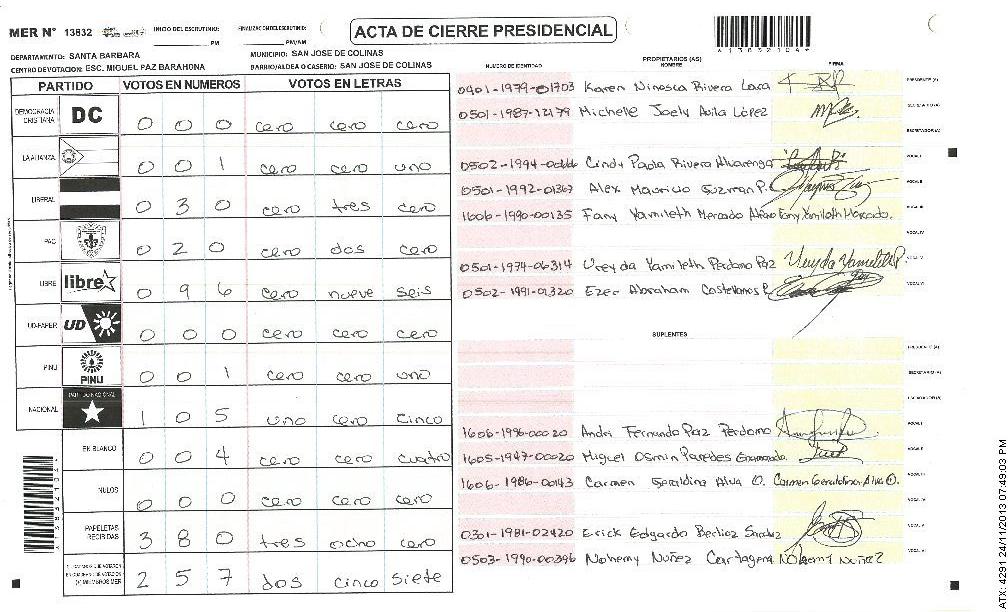 MER N° 13832
INICIO DEL ESCRUTINIO: PM
FINALIZACION DEL ESCRUTINIO: PM/AM
ACTA DE CIERRE PRESIDENCIAL
DEPARTAMENTO: SANTA BARBARA
MUNICIPIO: SAN JOSE DE COLINAS
CENTRO DE VOTACION: ESC. MIGUEL PAZ BARAHONA
BARRIO/ALDEA O CASERIO: SAN JOSE DE COLINAS
PARTIDO VOTOS EN NUMEROS VOTOS EN LETRAS
DEMOCRACIA CRISTIANA DC 0 0 0 cero cero cero
LA ALIANZA 0 0 1 cero cero uno
LIBERAL 0 3 0 cero tres cero
PAC 0 2 0 cero dos cero
LIBRE libre 0 9 6 cero nueve seis
UD-FAPER UD 0 0 0 cero cero cero
PINU PINU 0 0 1 cero cero uno
NACIONAL PARTIDO NACIONAL 1 0 5 uno cero cinco
EN BLANCO 0 0 4 cero cero cuatro
NULOS 0 0 0 cero cero cero
PAPELETAS RECIBIDAS 3 8 0 tres ocho cero
(+) MIEMBROS MER 2 5 7 dos cinco siete
NUMERO DE IDENTIDAD PROPIETARIOS (AS) NOMBRE FIRMA
0401-1979-01703 Karen Ninosca Rivera Lara PRESIDENTE (A)
0501-1987-12179 Michelle Joely Avila López SECRETARIO (A)
ESCRUTADOR (A)
Cindy Paola Rivera Alvarenga VOCAL I
0501-1992-01367 Alex Mauricio Guzman P. VOCAL II
1606-1990-00135 Fany Yamileth Mercado Fany Yamileth Mercado. VOCAL III
VOCAL IV
0501-1974-06314 Ureyda Yamileth Perdomo Paz Ureyda Yamileth P. VOCAL V
0502-1991-01320 Ezer Abraham Castellanos P. VOCAL VI
SUPLENTES
PRESIDENTE (A)
SECRETARIO (A)
ESCRUTADOR (A)
1606-1996-00020 Andri Fernando Paz Perdomo VOCAL I
1605-1947-00020 Miguel Osmin Paredes Enamorado VOCAL II
1606-1986-00143 Carmen Geraldina Alva O. Carmen Geraldina Alva O. VOCAL III
VOCAL IV
0301-1981-02420 Erick Edgardo Berlioz VOCAL V
0503-1990-00396 Nohemy Nuñez Cartagena Nohemy Nuñez VOCAL VI
ATX: 4291 24/11/2013 07:49:03 PM